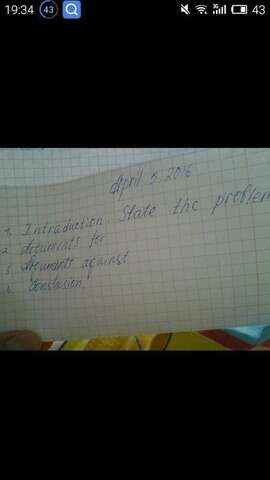 19:34 43 3G 43
April 5. 2016
1. Introduction. State the problem
2. Arguments for
3. Arguments against
Conclusion